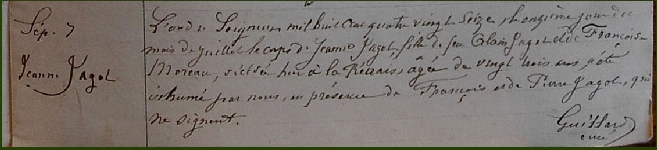 Sép. 7
Jeanne Jagot
L'an du Seigneur mil huit cent quatre vingt seize, le onzième jour du
mois de juillet le corps de Jeanne Jagot, fille de feu Jagot et de Françoise
Moreau, décédée hier à la âgée de vingt trois ans a été
inhumé par nous, en présence de François et de Pierre Jagot, qui
ne signent.
Guillard
curé